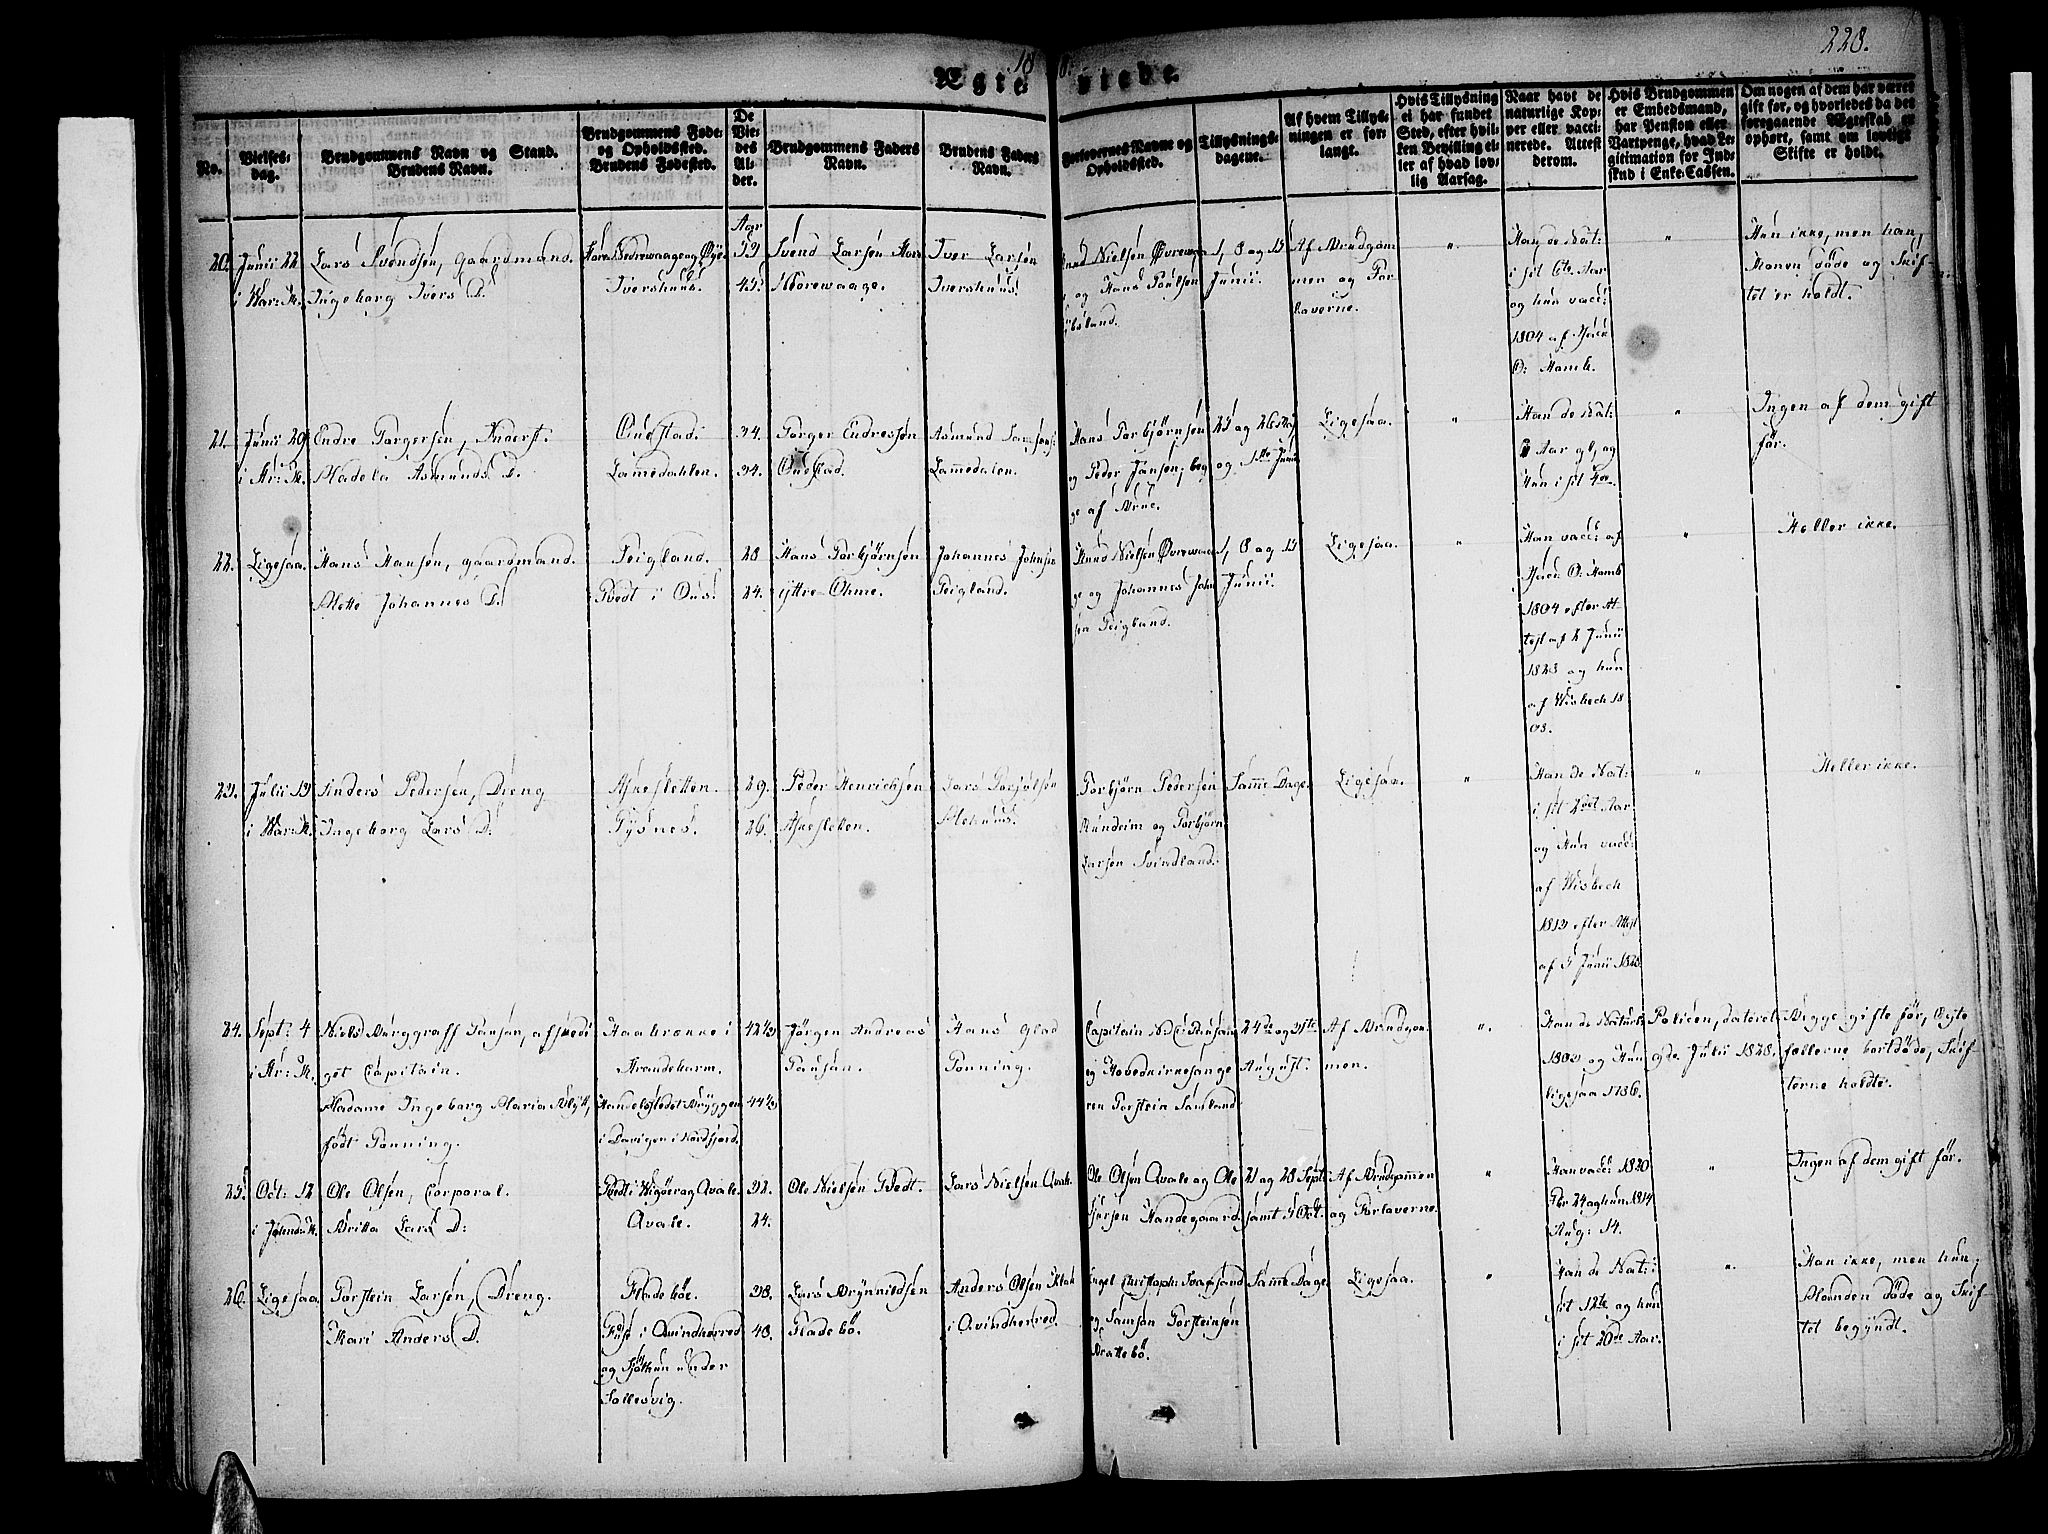 228.
Ægte
18
viede.
No.
Vielses-
dag.
Brudgommens Navn og Stand.
Brudens Navn.
Brudgommens Føde-
og Opholdssted.
Brudens Fødested.
De
Vie-
des
Al-
der.
Brudgommens Faders
Navn.
Brudens Faders
Navn.
Forlovernes Navne og
Opholdssted.
Tillysnings-
dagene.
Af hvem Tillys-
ningen er for-
langt.
Hvis Tillysning
ei har fundet
Sted, efter hvil-
ken Bevilling el-
ler af hvad lov-
lig Aarsag.
Naar havt de
naturlige Kop-
per eller vacci-
nerede. Attest
derom.
Hvis Brudgommen
er Embedsmand,
har Pension eller
Vartpenge, hvad Le-
gitimation for Ind-
skud i Enke-Cassen.
Om nogen af dem har været
gift før, og hvorledes da det
foregaaende Ægteskab er
ophørt, samt om lovligt
Skifte er holdt.
20. Junii 22
i Kar: K.
Lars Svendsen, gaardmand.
Ingeborg Ivers D.
Ivershuus.
Aar
53
45.
Svend Larsen
Nórewaage.
Iver Larsen
Ivershuus.
Nielsen Øvrewaa-
og Hans Poulsen
1, 8 og 15
Junii.
Af Brudgom-
men og For-
loverne.
"
Han de Nat:
i sit 6te Aar
og hun vacc:
1804 af
O: Hamb.
"
Hun ikke, men han,
Konen døde og Skif-
tet er holdt.
21. Junii 29
i Kr: K.
Endre Torgersen, Inderst.
Madela Asmunds D.
Onestad.
Lammedahlen.
34.
34.
Torger Endresen
Onestad.
Asmund
Lammedalen.
Hans Torbjørnsen
og Peder Jansen, beg-
ge af Brue.
25 og 26 Maj
og 1ste Junii
Ligesaa.
"
Han de Nat:
Aar gl, og
Hun i sit
"
Ingen af dem gift
før.
22. Ligesaa.
Hans Hansen, gaardmand.
Mette Johannes D.
Teigland.
Tvedt i Ous.
28
24.
Hans Torbjørnsen
yttre-Ohme.
Johannes Johnsen
Teigland.
Knud Nielsen Øvrewaa-
ge og Johannes John-
sen Teigland.
1, 8 og 15
Junii.
Ligesaa.
"
Han vacc: af
O: Hamb
1804 efter At-
test af 2 Junii
1823 og hun
af Wisbech 18
08.
"
Heller ikke.
23. Julii 13
i Kar: K.
Anders Pedersen, Dreng
Ingeborg Lars D.
Askesletten.
Tysnes.
29.
26.
Peder Henrichsen
Askesletten.
Lars
Torbjørn Pedersen
Rundeim og Torbjørn
Larsen Svindland.
Samme Dage.
Ligesaa.
"
Han de Nat:
i sit 2det Aar
og Hun vacc:
af Wisbech
1813 efter Attest
af 5 Junii 1828
"
Heller ikke.
24. Sept: 4
i Kr: K.
Niels Burggraff Pausan, afskedi-
get Capitain.
Madame Ingeborg Maria Blytt,
født Tønning.
i
Strandebarm.
Handelsstedet Bryggen
i Davigen i Nordfjord.
42½
44½
Jørgen Andreas
Pausan.
Hans Glad
Tønning.
Capitain
og Hovedkirkesange-
ren Torstein Sandand
24de og 31te
August.
Af Brudgom-
men.
"
Han de Naturl:
1803 og Hun
ligesaa 1786.
Policen, dateret
Julii 1828.
Begge gifte før, Ægte-
fællerne bortdøde, Skif-
terne holdte.
25. Oct: 12
Ole Olsen, Corporal.
Britta Lars D:
Tvedt i Wigøer og Qvale.
Qvale.
32.
24.
Ole Nielsen Tvedt.
Lars Nielsen Qvale
Ole Olsen Qvale og Ole
Sjursen Handegaard.
21 og 28 Sept
samt 5 Oct.
Af Brudgommen
og Forloverne.
"
Han vacc: 1820
Febr 24 og hun 1814
Aug: 14.
"
Ingen af dem gift før.
26. Ligesaa.
Torstein Larsen, Dreng.
Kari Anders D.
Fladebøe.
Huse i Qvindherred
38.
48.
Lars Brynnildsen
Fladebø.
Anders Olsen
i Qvindherred.
Engel Christoph: Svagsand
og Samson Torsteinsen
Brattebø.
Samme Dage.
Ligesaa.
"
Han de Nat: i
sit 12te og hun
i sit 20de Aar.
"
Han ikke, men hun;
Manden døde og Skif-
tet begyndt.